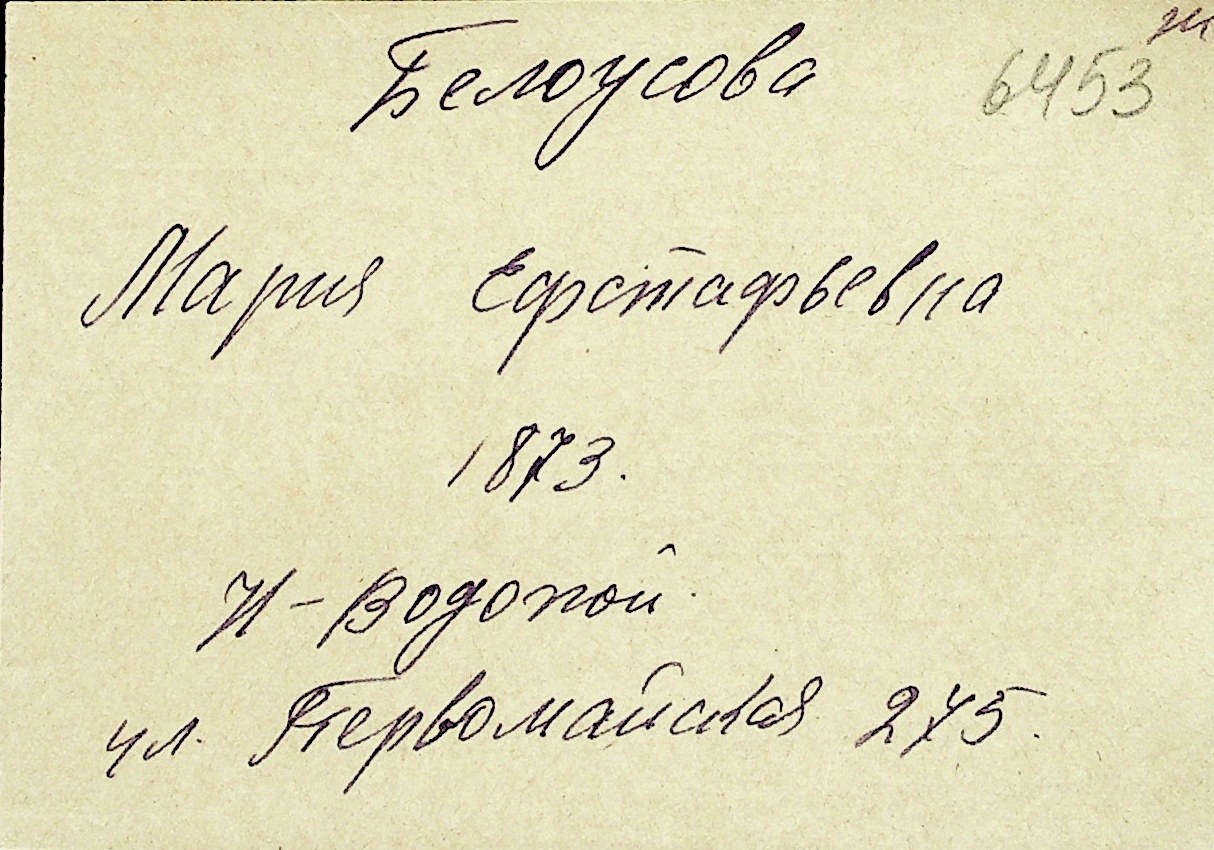 ж
Белоусова 6453
Мария Ефстафьевна
1873.
Н-Водопой
ул. Первомайская 275.